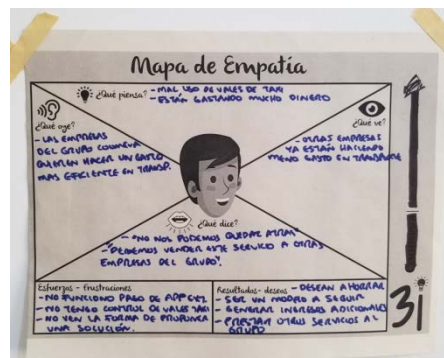 Mapa de Empatía
¿Qué piensa? - MAL USO DE VALES DE TAXI
- ESTÁN GASTANDO MUCHO DINERO
¿Qué oye?
- LAS EMPRESAS
DEL GRUPO
QUIEREN HACER UN GASTO
MAS EFICIENTE EN TRANSP.
¿Qué ve?
- OTRAS EMPRESAS
YA ESTÁN HACIENDO
MENO GASTO EN TRANSPORTE
¿Qué dice?
- "NO NOS PODEMOS QUEDAR ATRAS"
- "PODEMOS VENDER ESTE SERVICIO A OTRAS
EMPRESAS DEL GRUPO".
Esfuerzos - frustraciones
- NO FUNCIONO PAGO DE APP
- NO TENGO CONTROL DE VALES TAXI
- NO VEN LA FORMA DE PROPONER
UNA SOLUCIÓN.
Resultados - deseos - DESEAN AHORRAR
- SER UN MODELO A SEGUIR
- GENERAR INGRESOS ADICIONALES
- PRESTAR OTROS SERVICIOS AL
GRUPO